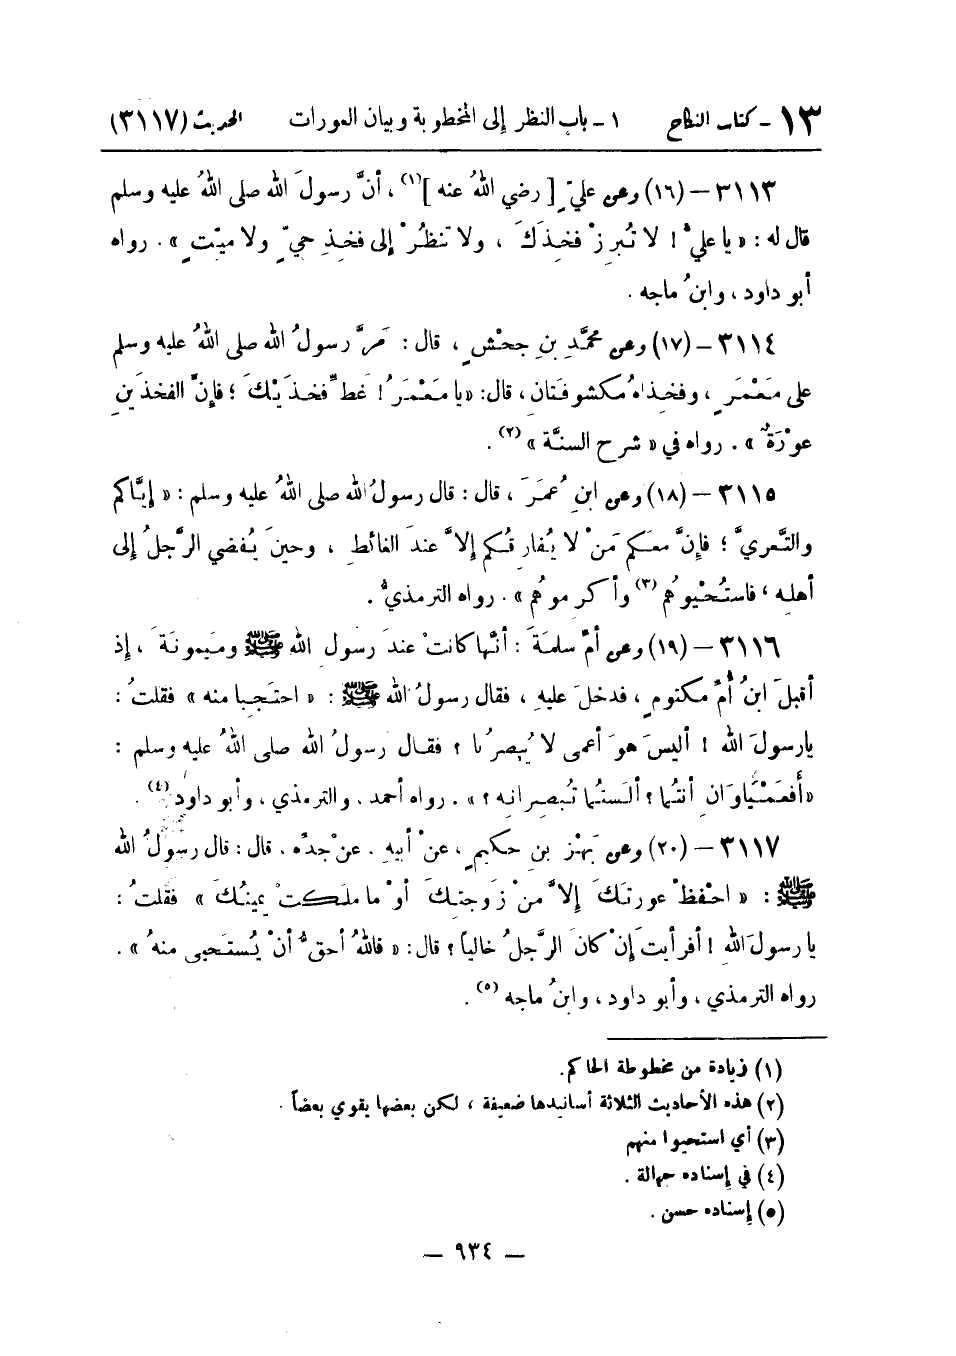 ١٣ - كتاب النكاح ١ - باب النظر إلى المخطوبة وبيان العورات الحديث (٣١١٧)
٣١١٣ - (١٦) وعن عليّ [رضي اللهُ عنه](١)، أنَّ رسولَ الله صلى اللهُ عليه وسلم
قال له: «يا عليُّ! لا تُبرِزْ فخِذَكَ، ولا تنظُرْ إلى فخِذِ حيٍّ ولا ميّتٍ». رواه
أبو داود، وابنُ ماجه.
٣١١٤ - (١٧) وعن محمَّدِ بنِ جحْشٍ، قال: مَرَّ رسولُ الله صلى اللهُ عليه وسلم
على مَعْمَرٍ، وفخِذاهُ مكشوفَتانِ، قال: «يا مَعْمَرُ! غَطِّ فخذَيْكَ؛ فإنَّ الفخذَينِ
عوْرَةٌ». رواه في «شرح السنَّة»(٢).
٣١١٥ - (١٨) وعن ابنِ عُمَرَ، قال: قال رسولُ الله صلى اللهُ عليه وسلم: «إيَّاكم
والتَّعريَّ؛ فإنَّ معكم مَنْ لا يُفارِقُكم إلاَّ عندَ الغائطِ، وحينَ يُفضي الرَّجلُ إلى
أهلِه، فاستُحْيوهُم(٣) وأكرموهُم». رواه الترمذيُّ.
٣١١٦ - (١٩) وعن أمِّ سلمةَ: أنَّها كانتْ عندَ رسولِ الله ﷺ وميمونةَ، إذ
أقبلَ ابنُ أُمِّ مكتومٍ، فدخلَ عليهِ، فقال رسولُ الله ﷺ: «احتَجِبا منه» فقلتُ:
يا رسولَ الله! أليسَ هوَ أعمى لا يُبصرُنا؟ فقال رسولُ الله صلى اللهُ عليه وسلم:
«أَفعَمْياوَانِ أنتُما؟ ألستُما تُبصِرانِه؟». رواه أحمد، والترمذي، وأبو داود(٤).
٣١١٧ - (٢٠) وعن بَهْزِ بنِ حكيمٍ، عنْ أبيهِ، عنْ جدِّه، قال: قال رسولُ الله
ﷺ: «احْفظْ عورتَكَ إلاَّ مِنْ زَوجتِكَ أوْ ما ملكتْ يمينُكَ» فقلتُ:
يا رسولَ اللهِ! أفرأيتَ إنْ كانَ الرَّجلُ خالياً؟ قال: «فاللهُ أحقُّ أنْ يُستَحيى منهُ».
رواه الترمذي، وأبو داود، وابنُ ماجه(٥).
(١) زيادة من مخطوطة الحاكم.
(٢) هذه الأحاديث الثلاثة أسانيدها ضعيفة، لكن بعضها يقوي بعضاً.
(٣) أي استحيوا منهم
(٤) في إسناده جهالة.
(٥) إسناده حسن.
— ٩٣٤ —